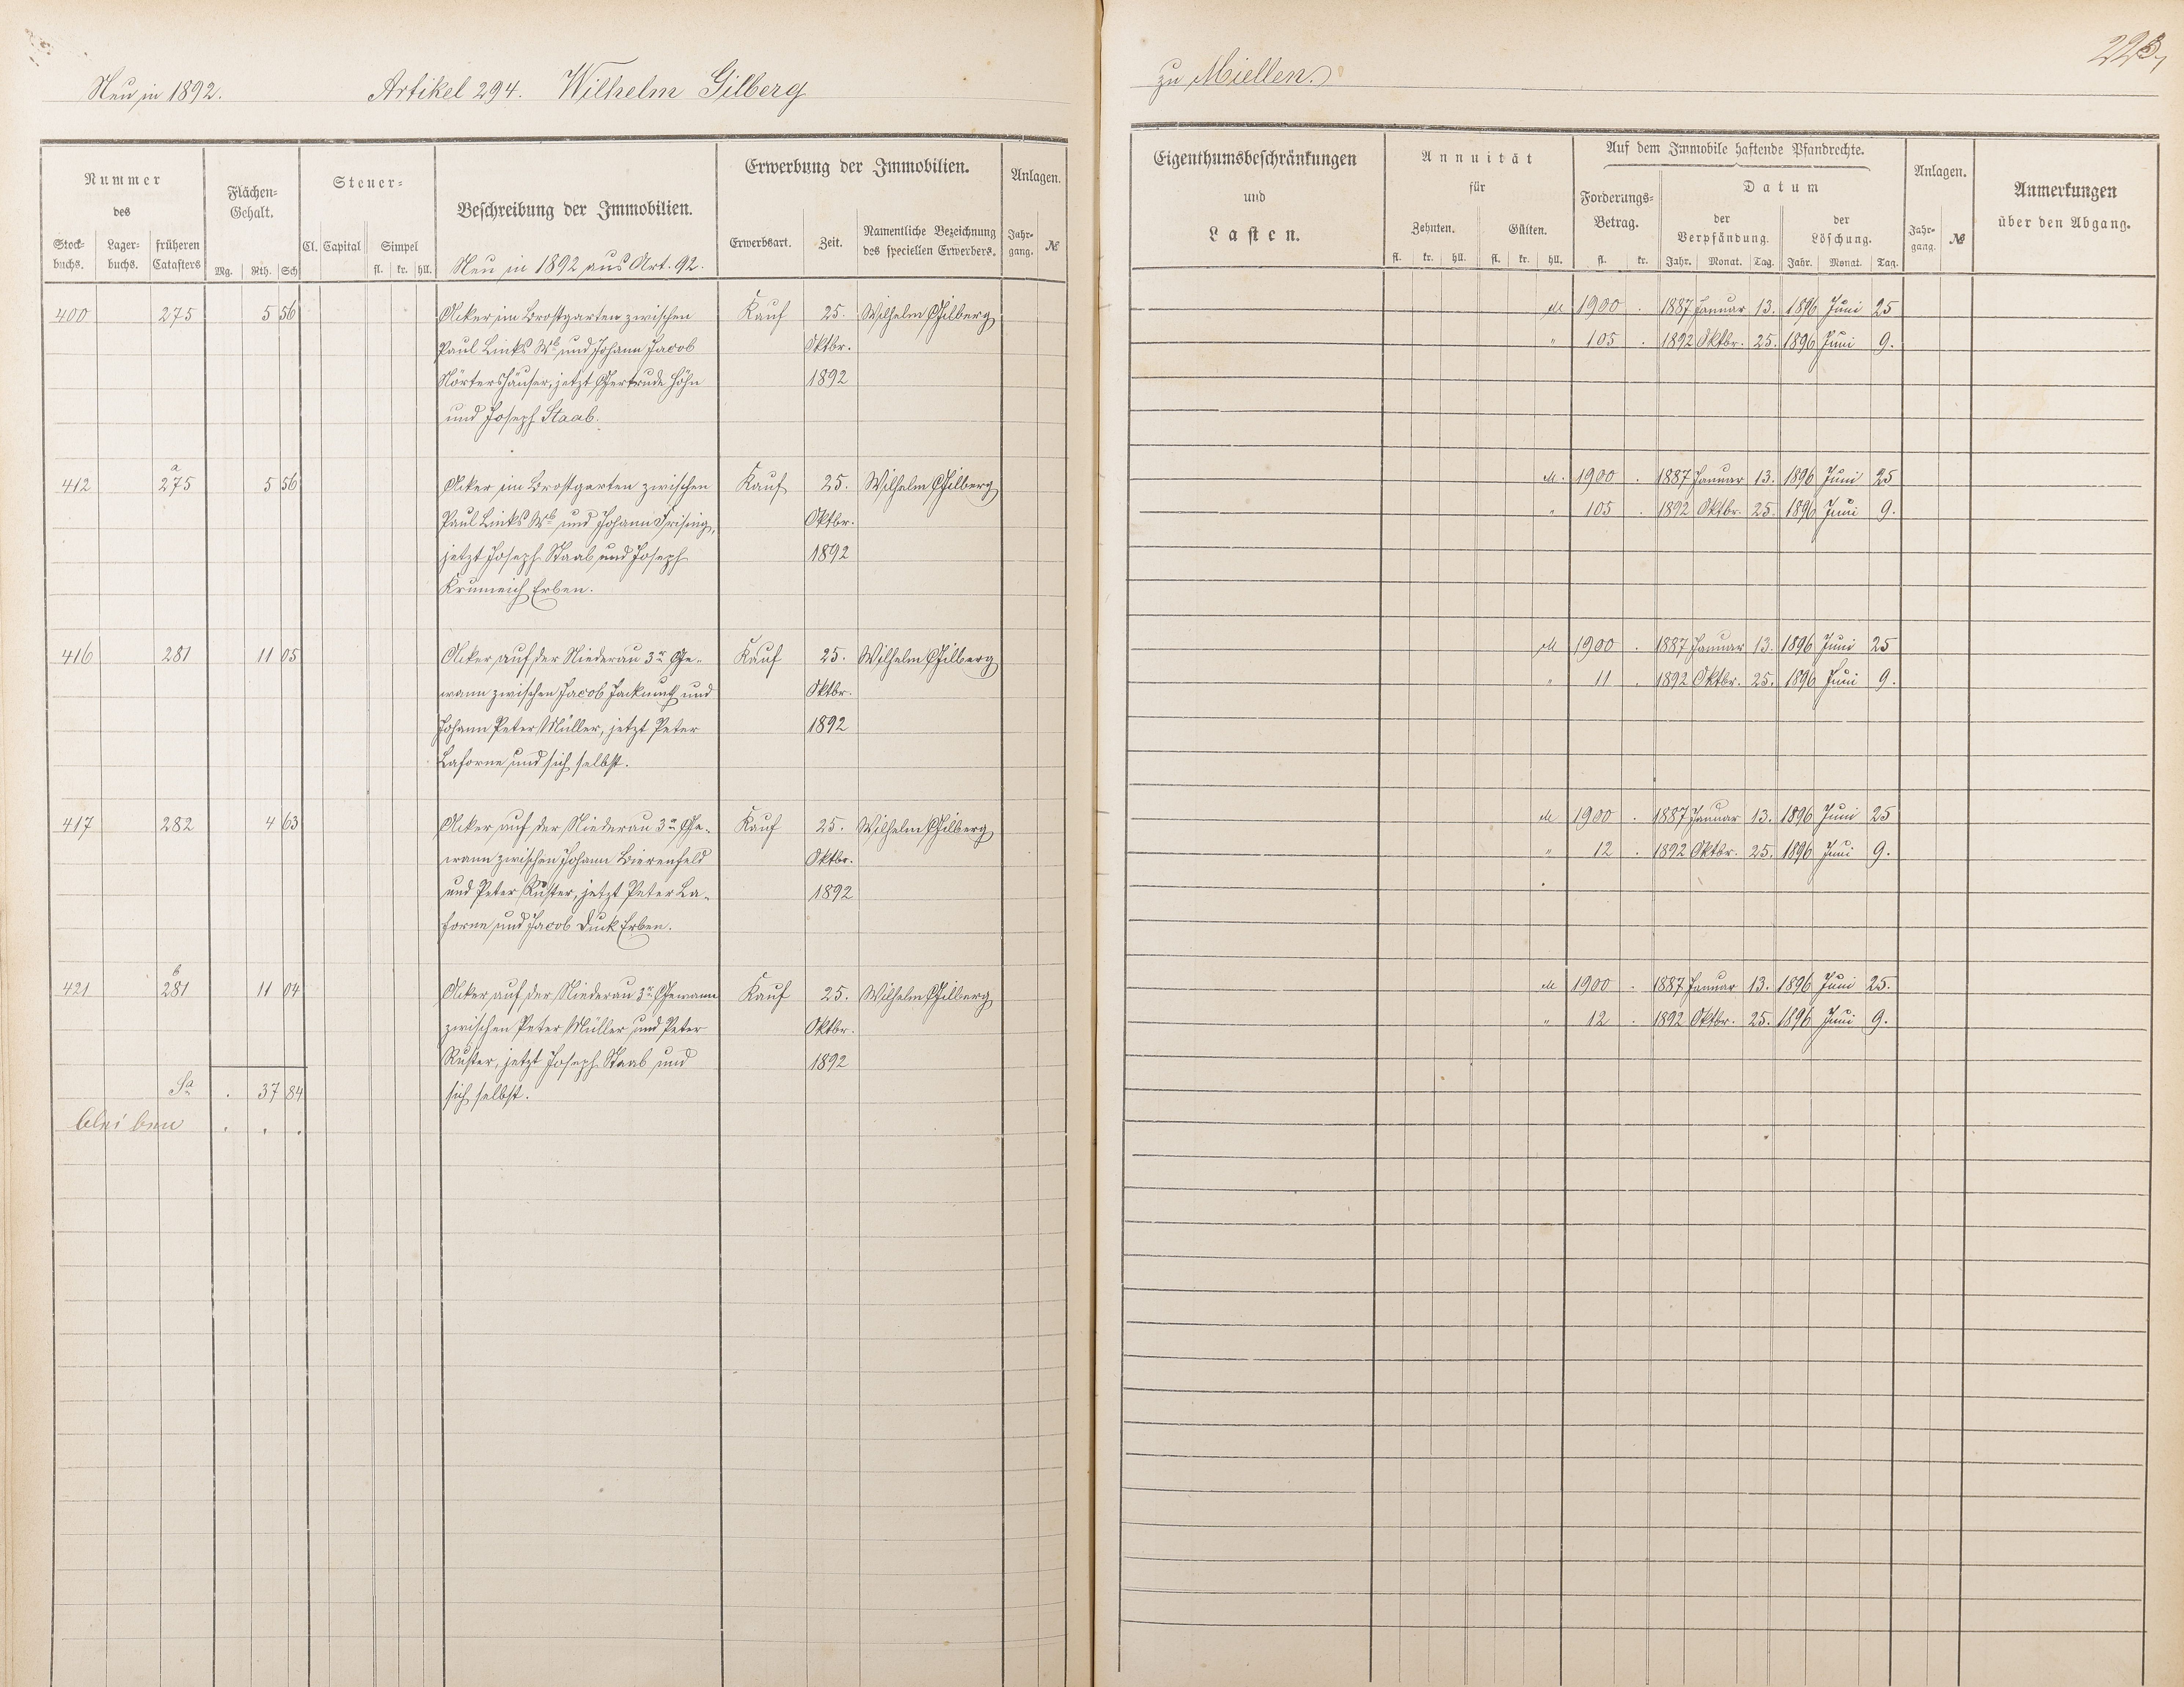 Neu in 1892. Artikel 294. Wilhelm Gilberg
zu Miellen.
223,
Nummer
des
Stock-
buchs.
Lager-
buchs.
früheren
Catasters
Flächen-
Gehalt.
Mg. Rth. Sch
Steuer-
Cl. Capital Simpel
fl. kr. hll.
Beschreibung der Immobilien.
Neu in 1892 aus Art. 92.
Erwerbung der Immobilien.
Erwerbsart. Zeit.
Namentliche Bezeichnung
des speciellen Erwerbers.
Anlagen.
Jahr-
gang.
№
Eigenthumsbeschränkungen
und
Lasten.
Annuität
für
Zehnten. Gülten.
fl. kr. hll. fl. kr. hll.
Auf dem Immobile haftende Pfandrechte.
Forderungs-
Betrag.
fl. kr.
Datum
der
Verpfändung.
der
Löschung.
Jahr. Monat. Tag. Jahr. Monat. Tag.
Anlagen.
Jahr-
gang.
№
Anmerkungen
über den Abgang.
400 275 5 56 Acker im Brostgarten zwischen Kauf 25. Wilhelm Gilberg M 1900 . 1887 Januar 13. 1896 Juni 25
Paul Links Wb und Johann Jacob Oktbr. " 105 . 1892 Oktbr. 25. 1896 Juni 9.
Nörtershäuser, jetzt Gertrude Höhn 1892
und Joseph Staab.
412 275 a 5 56 Acker im Brostgarten zwischen Kauf 25. Wilhelm Gilberg M. 1900 . 1887 Januar 13. 1896 Juni 25
Paul Links Wb und Johann Frising, Oktbr. " 105 . 1892 Oktbr. 25. 1896 Juni 9.
jetzt Joseph Staab und Joseph 1892
Krumeich Erben.
416 281 11 05 Acker auf der Niederau 3r Ge- Kauf 25. Wilhelm Gilberg M 1900 . 1887 Januar 13. 1896 Juni 25
wann zwischen Jacob Jackmuth und Oktbr. " 11 . 1892 Oktbr. 25. 1896 Juni 9.
Johann Peter Müller, jetzt Peter 1892
Laforne und sich selbst.
417 282 4 63 Acker auf der Niederau 3r Ge- Kauf 25. Wilhelm Gilberg M 1900 . 1887 Januar 13. 1896 Juni 25
wann zwischen Johann Bierenfeld Oktbr. " 12 . 1892 Oktbr. 25. 1896 Juni 9.
und Peter Ruster, jetzt Peter La- 1892
forne und Jacob Duck Erben.
421 281 b 11 04 Acker auf der Niederau 3r Gewann Kauf 25. Wilhelm Gilberg M 1900 . 1887 Januar 13. 1896 Juni 25.
zwischen Peter Müller und Peter Oktbr. " 12 . 1892 Oktbr. 25. 1896 Juni 9.
Ruster, jetzt Joseph Staab und 1892
Sa . 37 84 sich selbst.
bleiben . . .